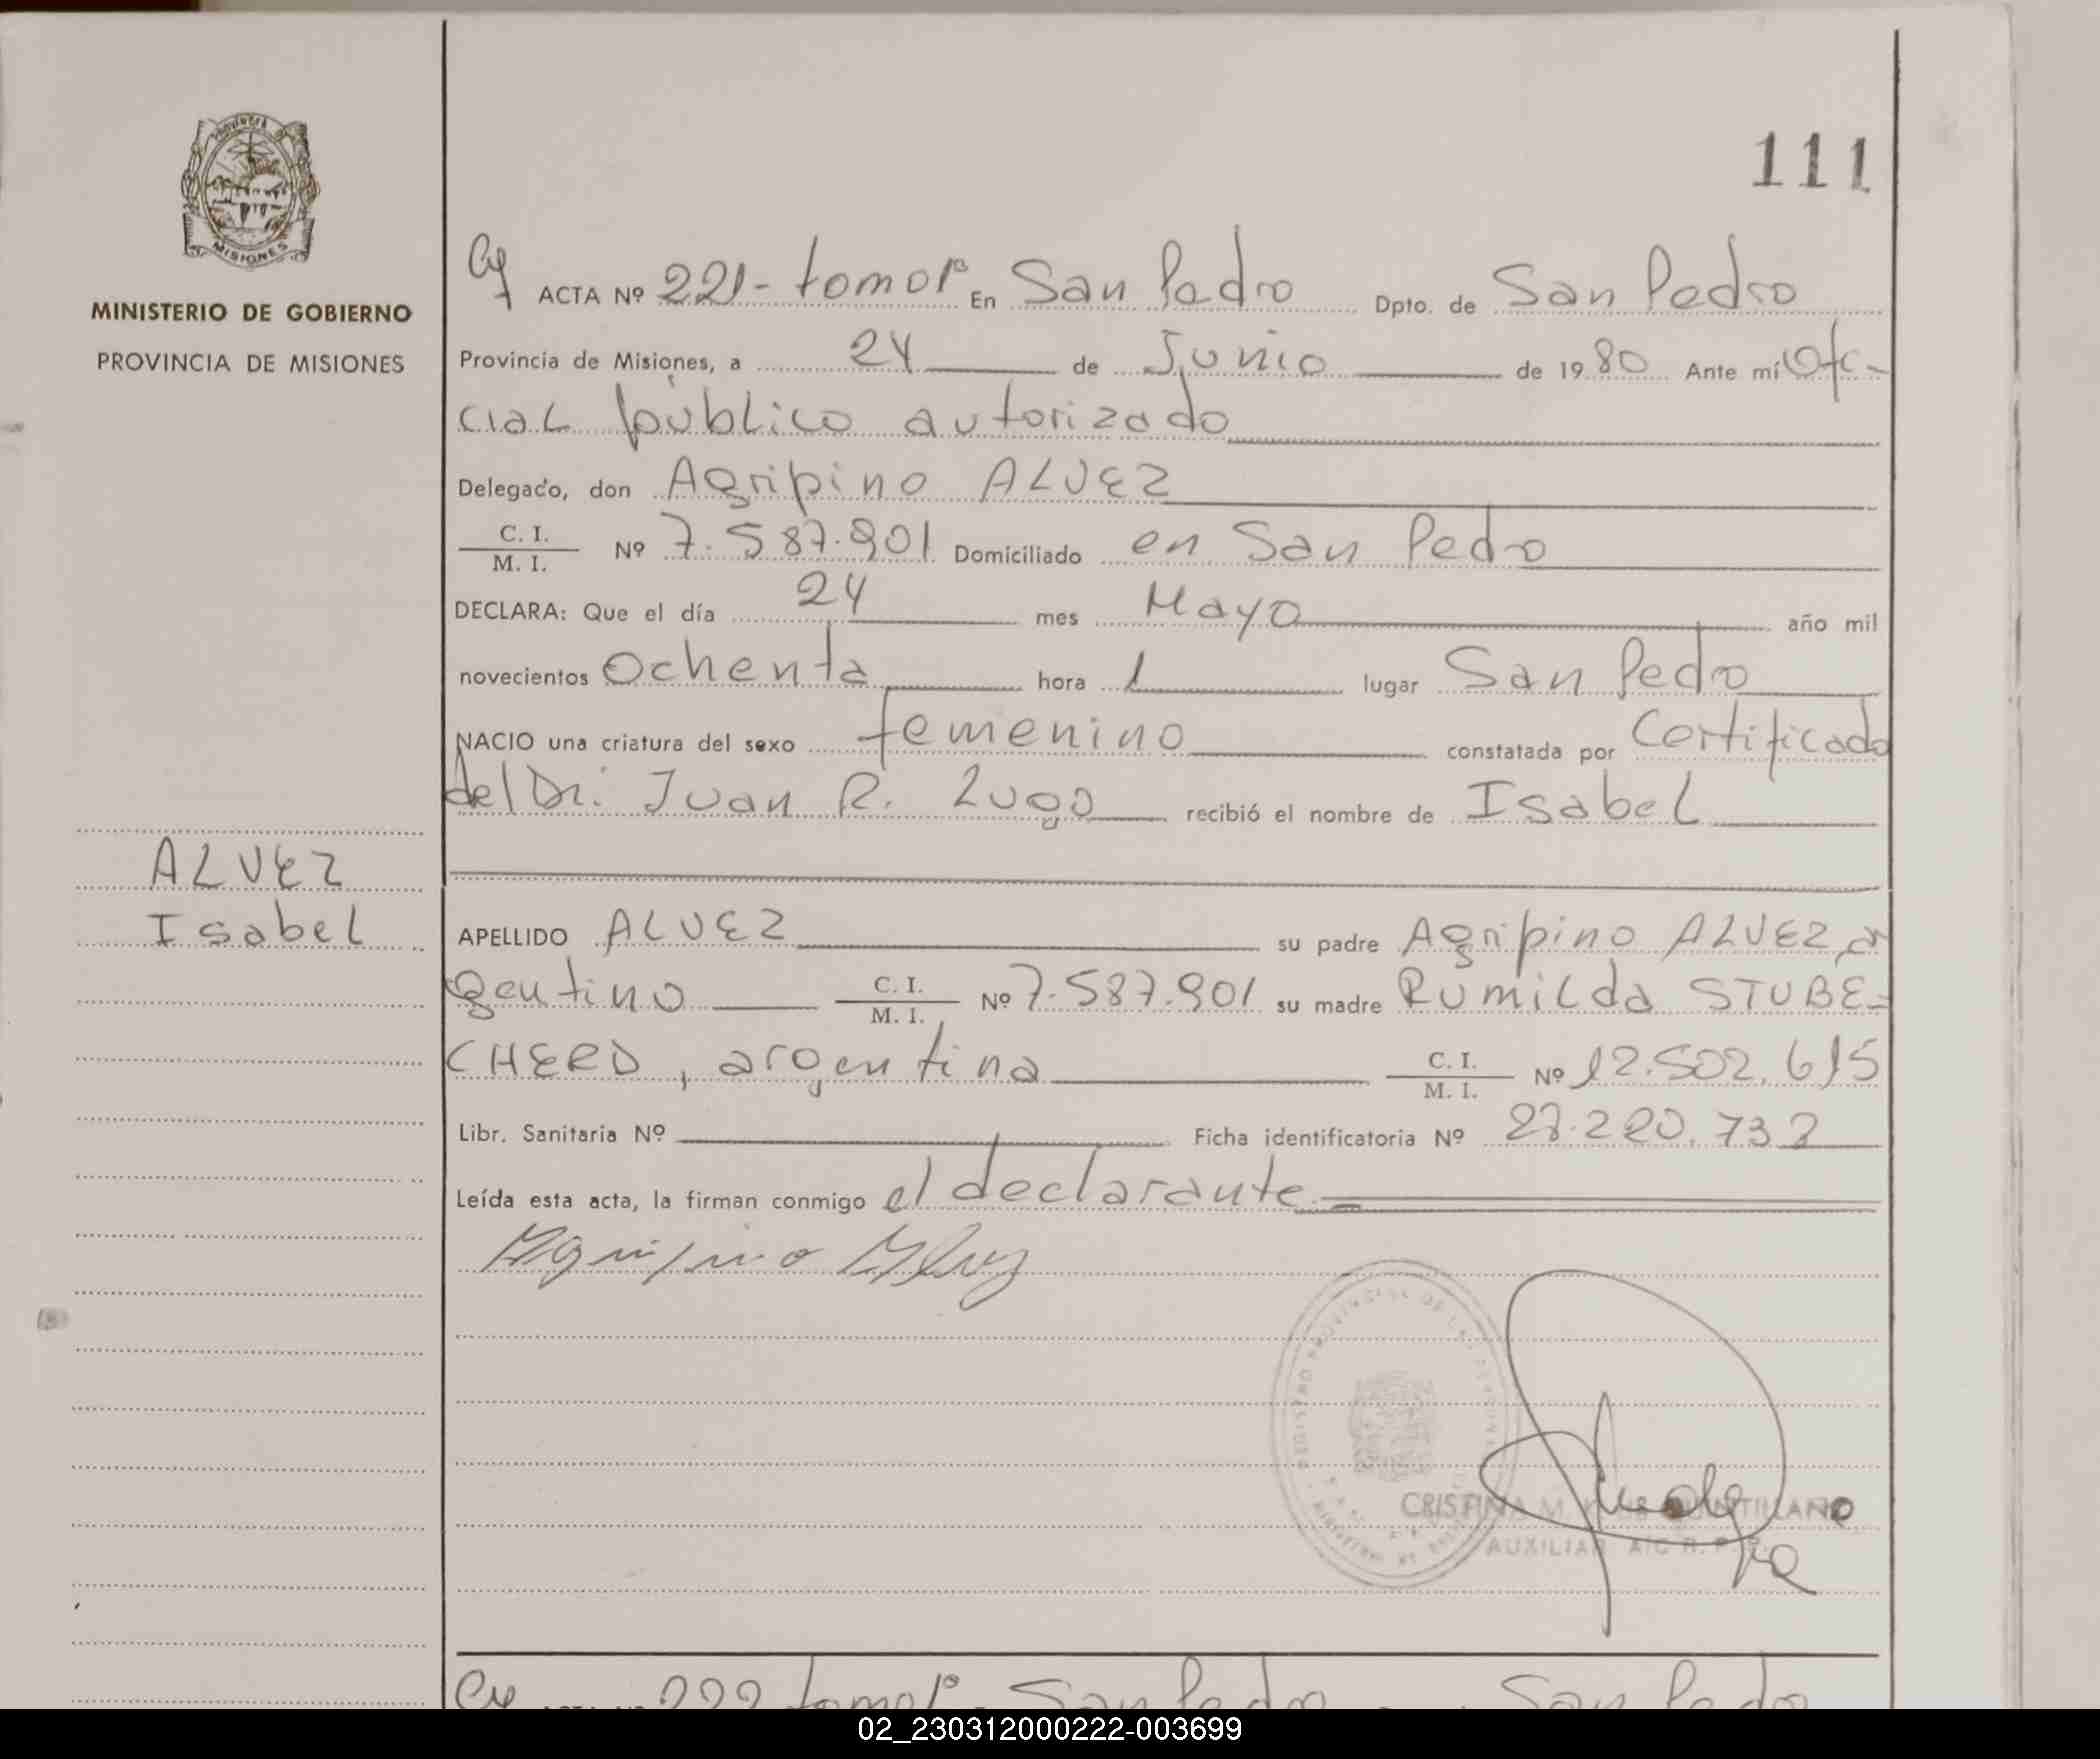 111
MISIONES
MINISTERIO DE GOBIERNO
PROVINCIA DE MISIONES
ACTA Nº 221- tomo 1º En San Pedro Dpto. de San Pedro
Provincia de Misiones, a 24 de Junio de 1980 Ante mí Ofi-
cial público autorizado
Delegado, don Agripino ALVEZ
C. I.
M. I. Nº 7.587.901 Domiciliado en San Pedro
DECLARA: Que el día 24 mes Mayo año mil
novecientos Ochenta hora 1 lugar San Pedro
NACIO una criatura del sexo femenino constatada por Certificado
del Dr. Juan R. Lugo recibió el nombre de Isabel
ALVEZ
Isabel
APELLIDO ALVEZ su padre Agripino ALVEZ, ar
gentino C. I.
M. I. Nº 7.587.901 su madre Rumilda STUBE-
CHERD, argentina C. I.
M. I. Nº 12.502.615
Libr. Sanitaria Nº Ficha identificatoria Nº
Leída esta acta, la firman conmigo el declarante
Agripino Alvez
REGISTRO PROVINCIAL DE LAS PERSONAS
CRISTINA M.
AUXILIAR A/C R. P. P.
222 tomo 1º San Pedro San Pedro
02_230312000222-003699